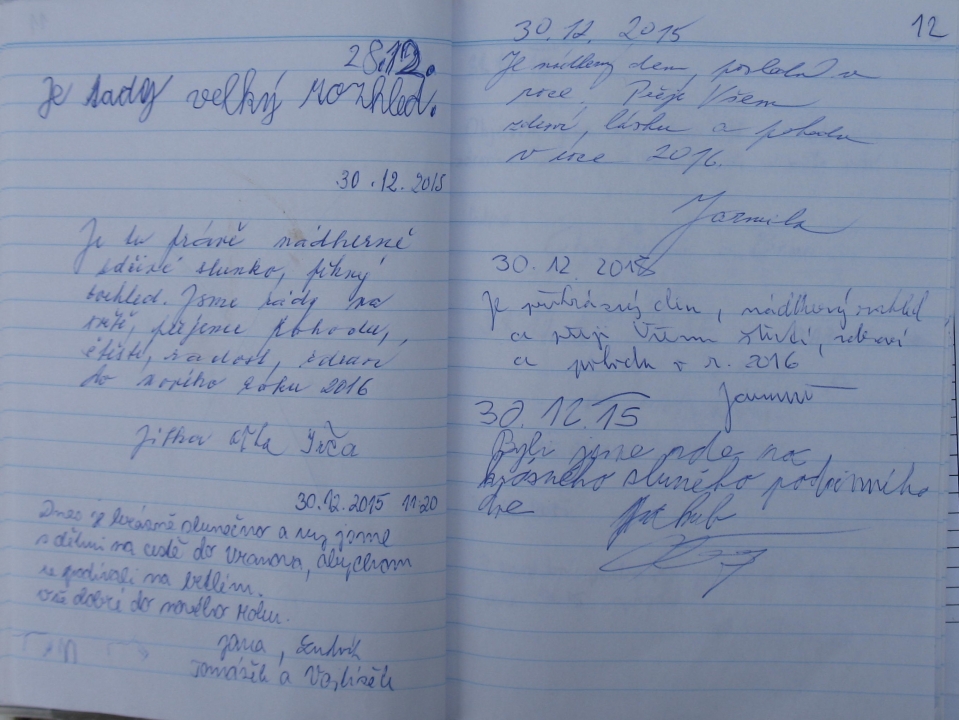 28.12.
Je tady velký rozhled.
30.12.2015
Je tu právě nádherné
slunko, pěkný
rozhled. Jsme rády na
přejeme pohodu,
štěstí, radost, zdraví
do nového roku 2016
Jitka Irča
30.12.2015 11:20
Dnes je krásně slunečno a my jsme
s dětmi na cestě do Vranova, abychom
se podívali na betlém.
Vše dobré do nového roku.
Jana, Ludvík
Tomášek a Vojtíšek
12
30.12.2015
Je nádherný den, poslední v
roce. Přeji Všem
zdraví, lásku a pohodu
v roce 2016.
Jarmila
30.12.2015
Je překrásný den, nádherný rozhled
a přeji Všem štěstí, zdraví
a pohodu v r. 2016
30.12.15
Byli jsme zde na
krásného podzimního
dne